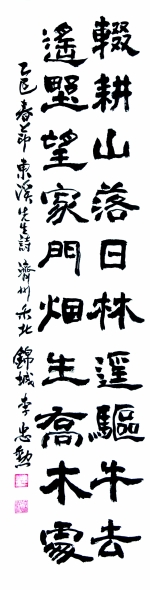 輟耕山落日林逕驅牛去
遙墅望家門烟生喬木處
乙巳春節東溪先生詩 濟州禾北 錦城 李忠勲